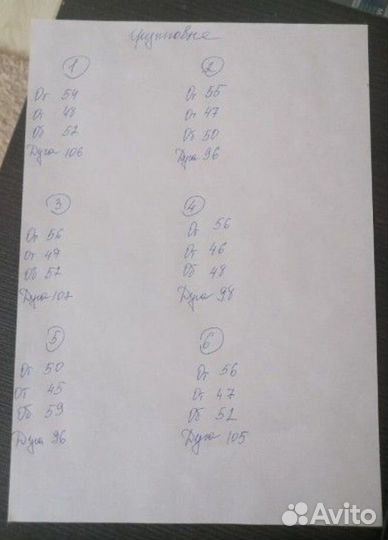 групповые
1
От 54
От 48
Об 52
Дуга 106
2
От 55
От 47
Об 50
Дуга 96
3
От 56
От 47
Об 52
Дуга 102
4
От 56
От 46
Об 48
Дуга 98
5
От 50
От 45
Об 59
Дуга 96
6
От 56
От 47
Об 52
Дуга 105
Avito